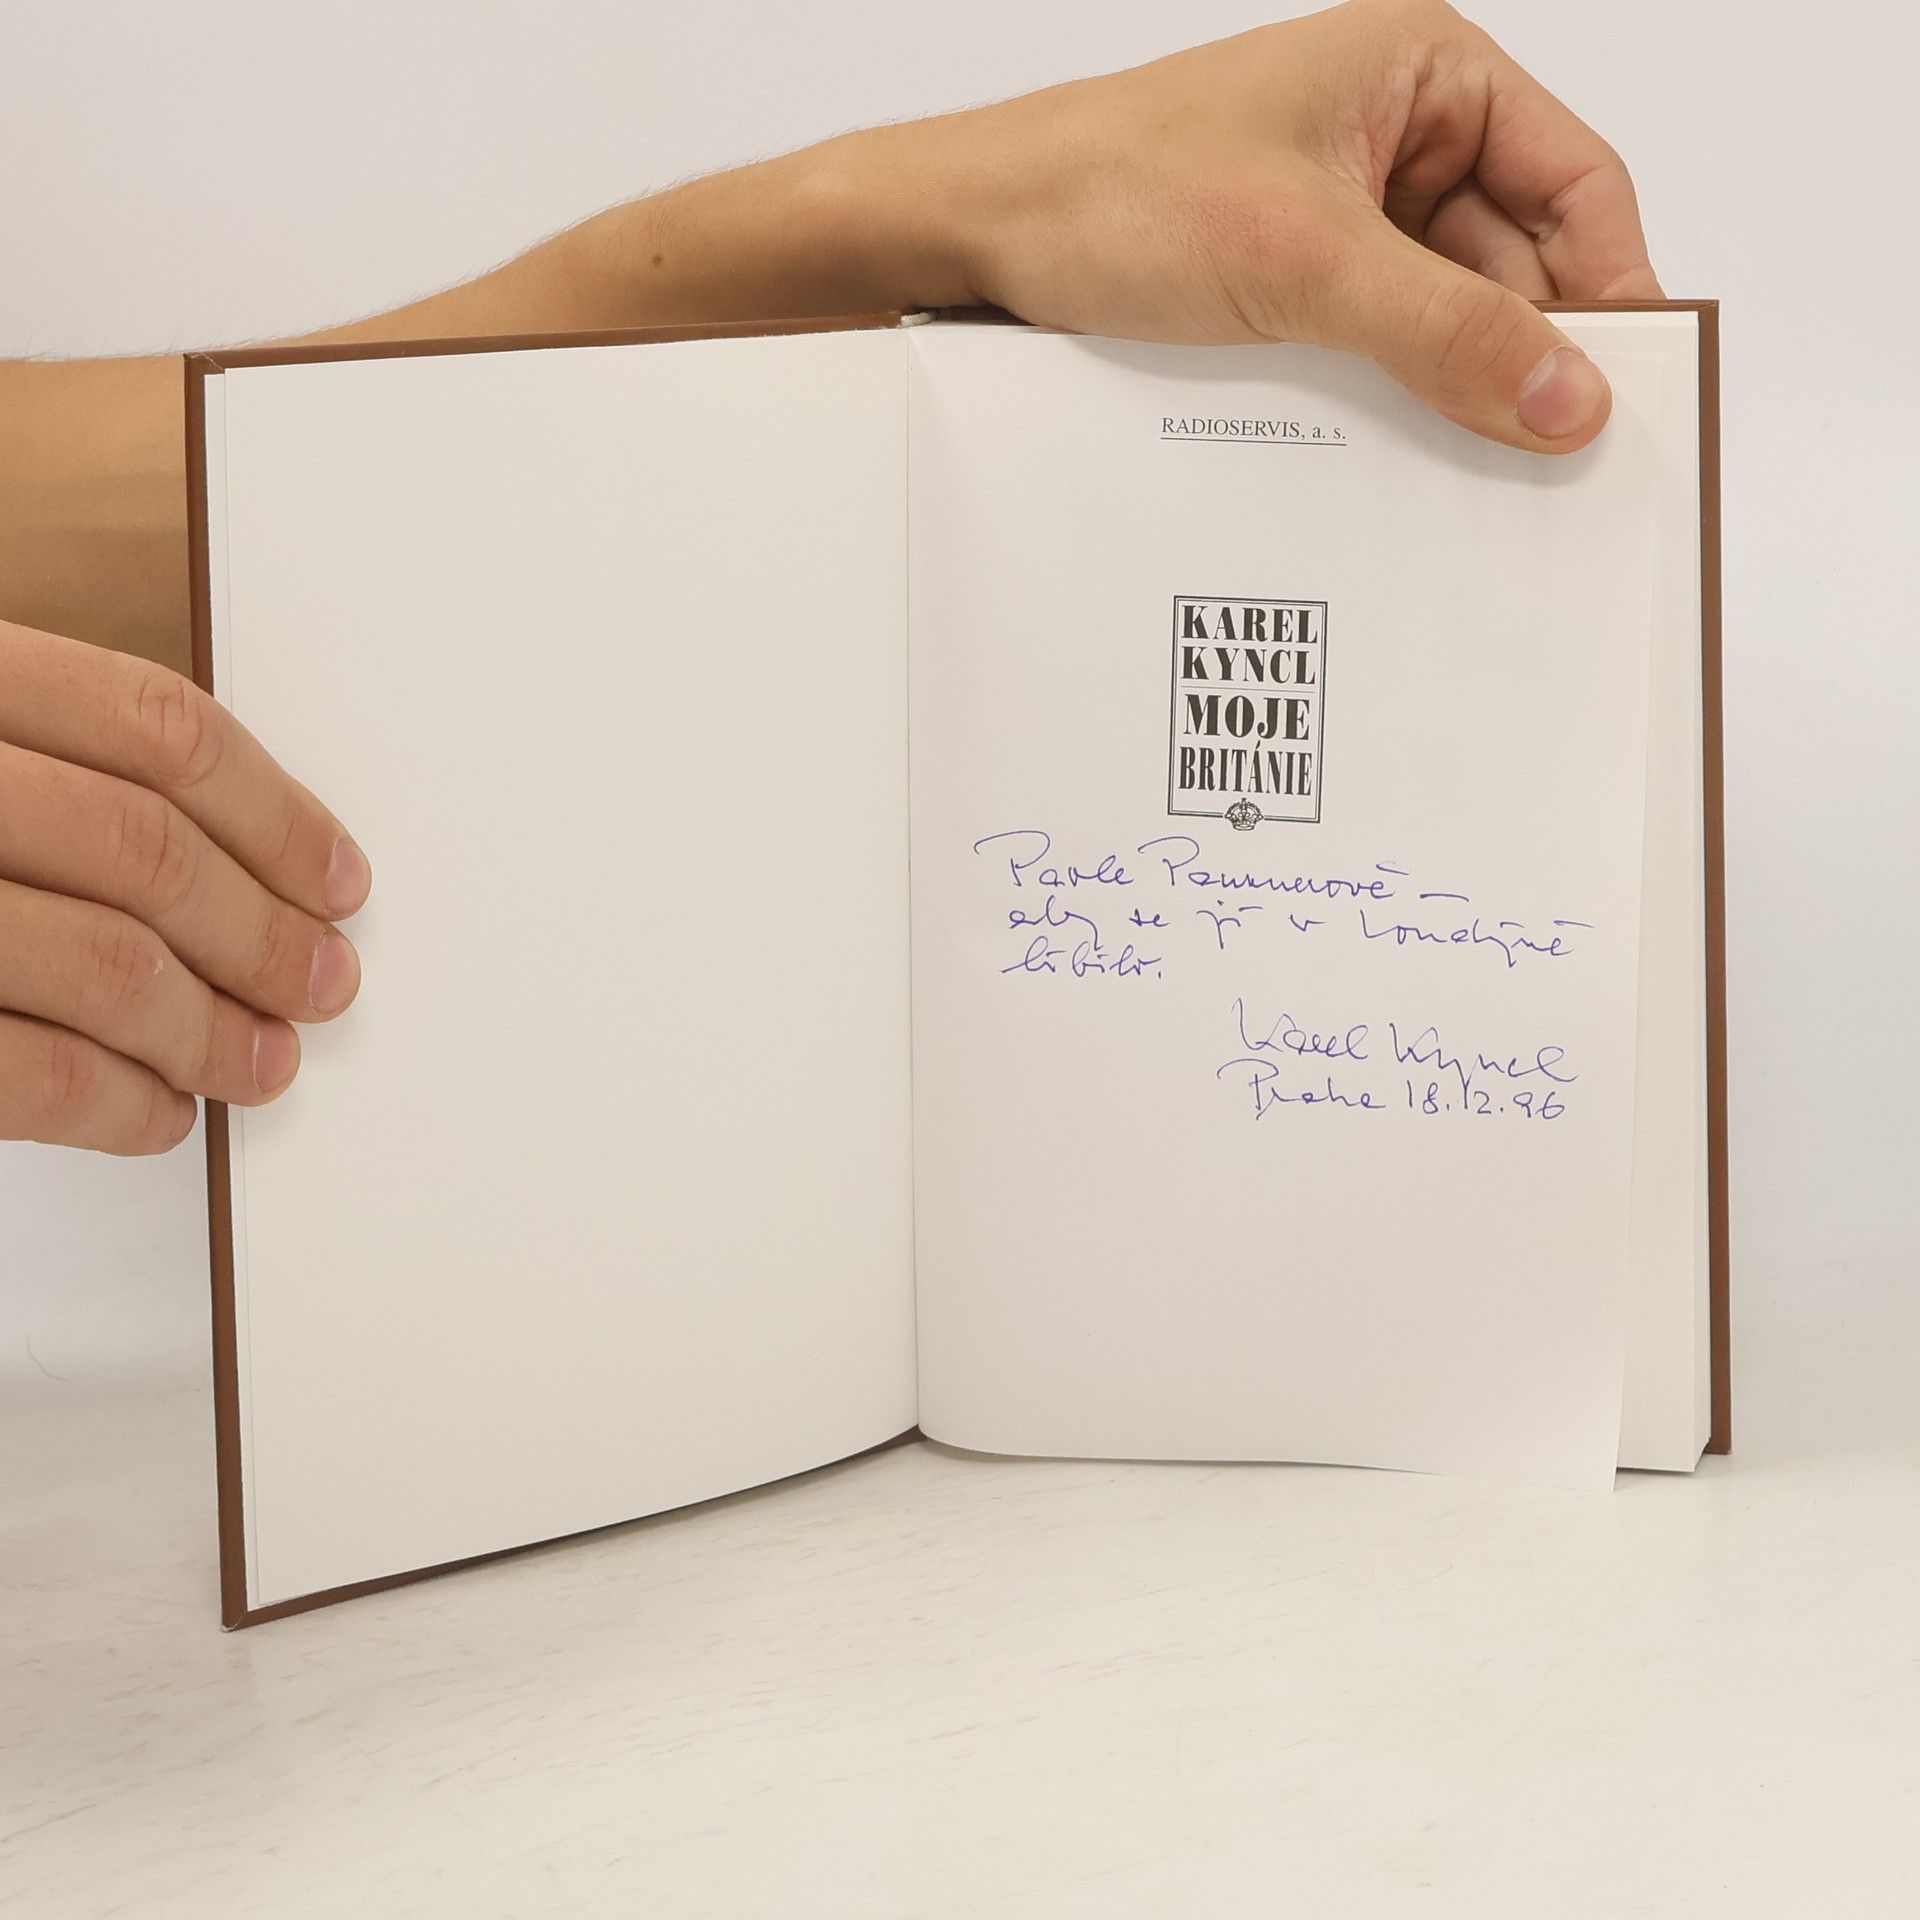 RADIOSERVIS, a. s.
KAREL
KYNCL
MOJE
BRITÁNIE
Pavle
aby se jí v Londýně
líbilo.
Karel Kyncl
Praha 18.12.96